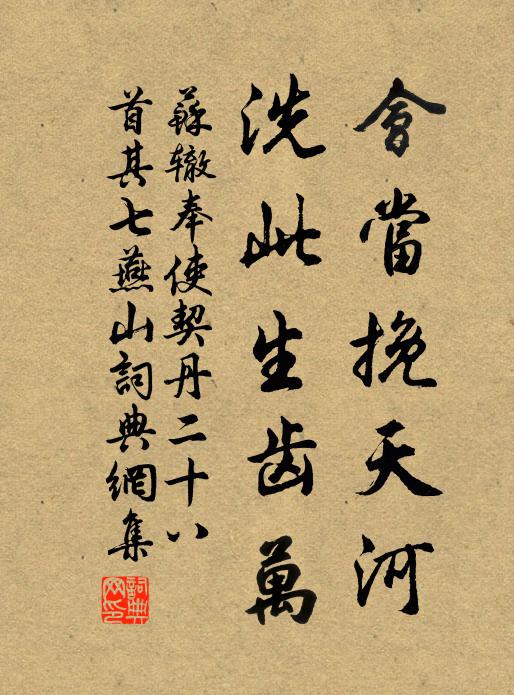 會當挽天河
洗此生齿萬
蘇辙奉使契丹二十八
首其七燕山詞典網集
詞典网印